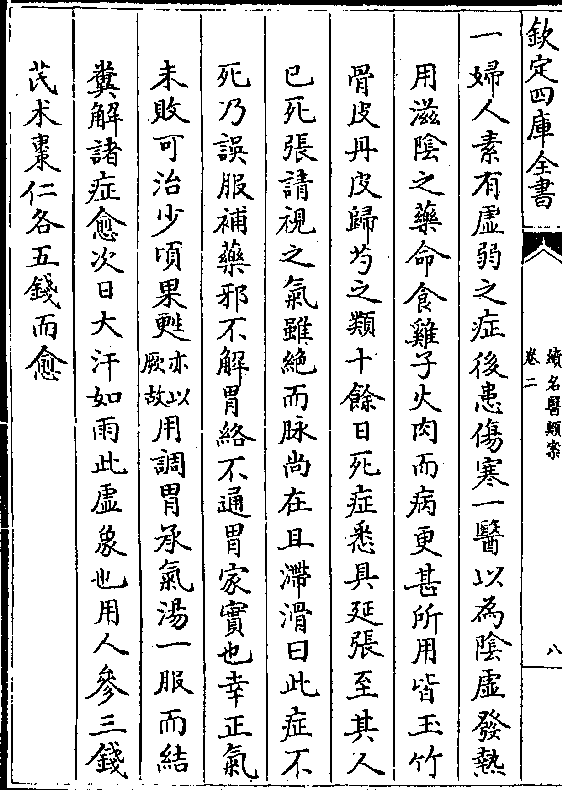 欽定四庫全書
續名醫類案
卷二
八
一婦人素有虛弱之症後患傷寒一醫以為陰虛發熱
用滋陰之藥命食雞子火肉而病更甚所用皆玉竹
骨皮丹皮歸芍之類十餘日死症悉具延張至其人
已死張請視之氣雖絕而脉尚在且滯滑曰此症不
死乃誤服補藥邪不解胃絡不通胃家實也幸正氣
未敗可治少頃果甦亦以厥故用調胃承氣湯一服而結
糞解諸症愈次日大汗如雨此虛象也用人參三錢
芪术棗仁各五錢而愈